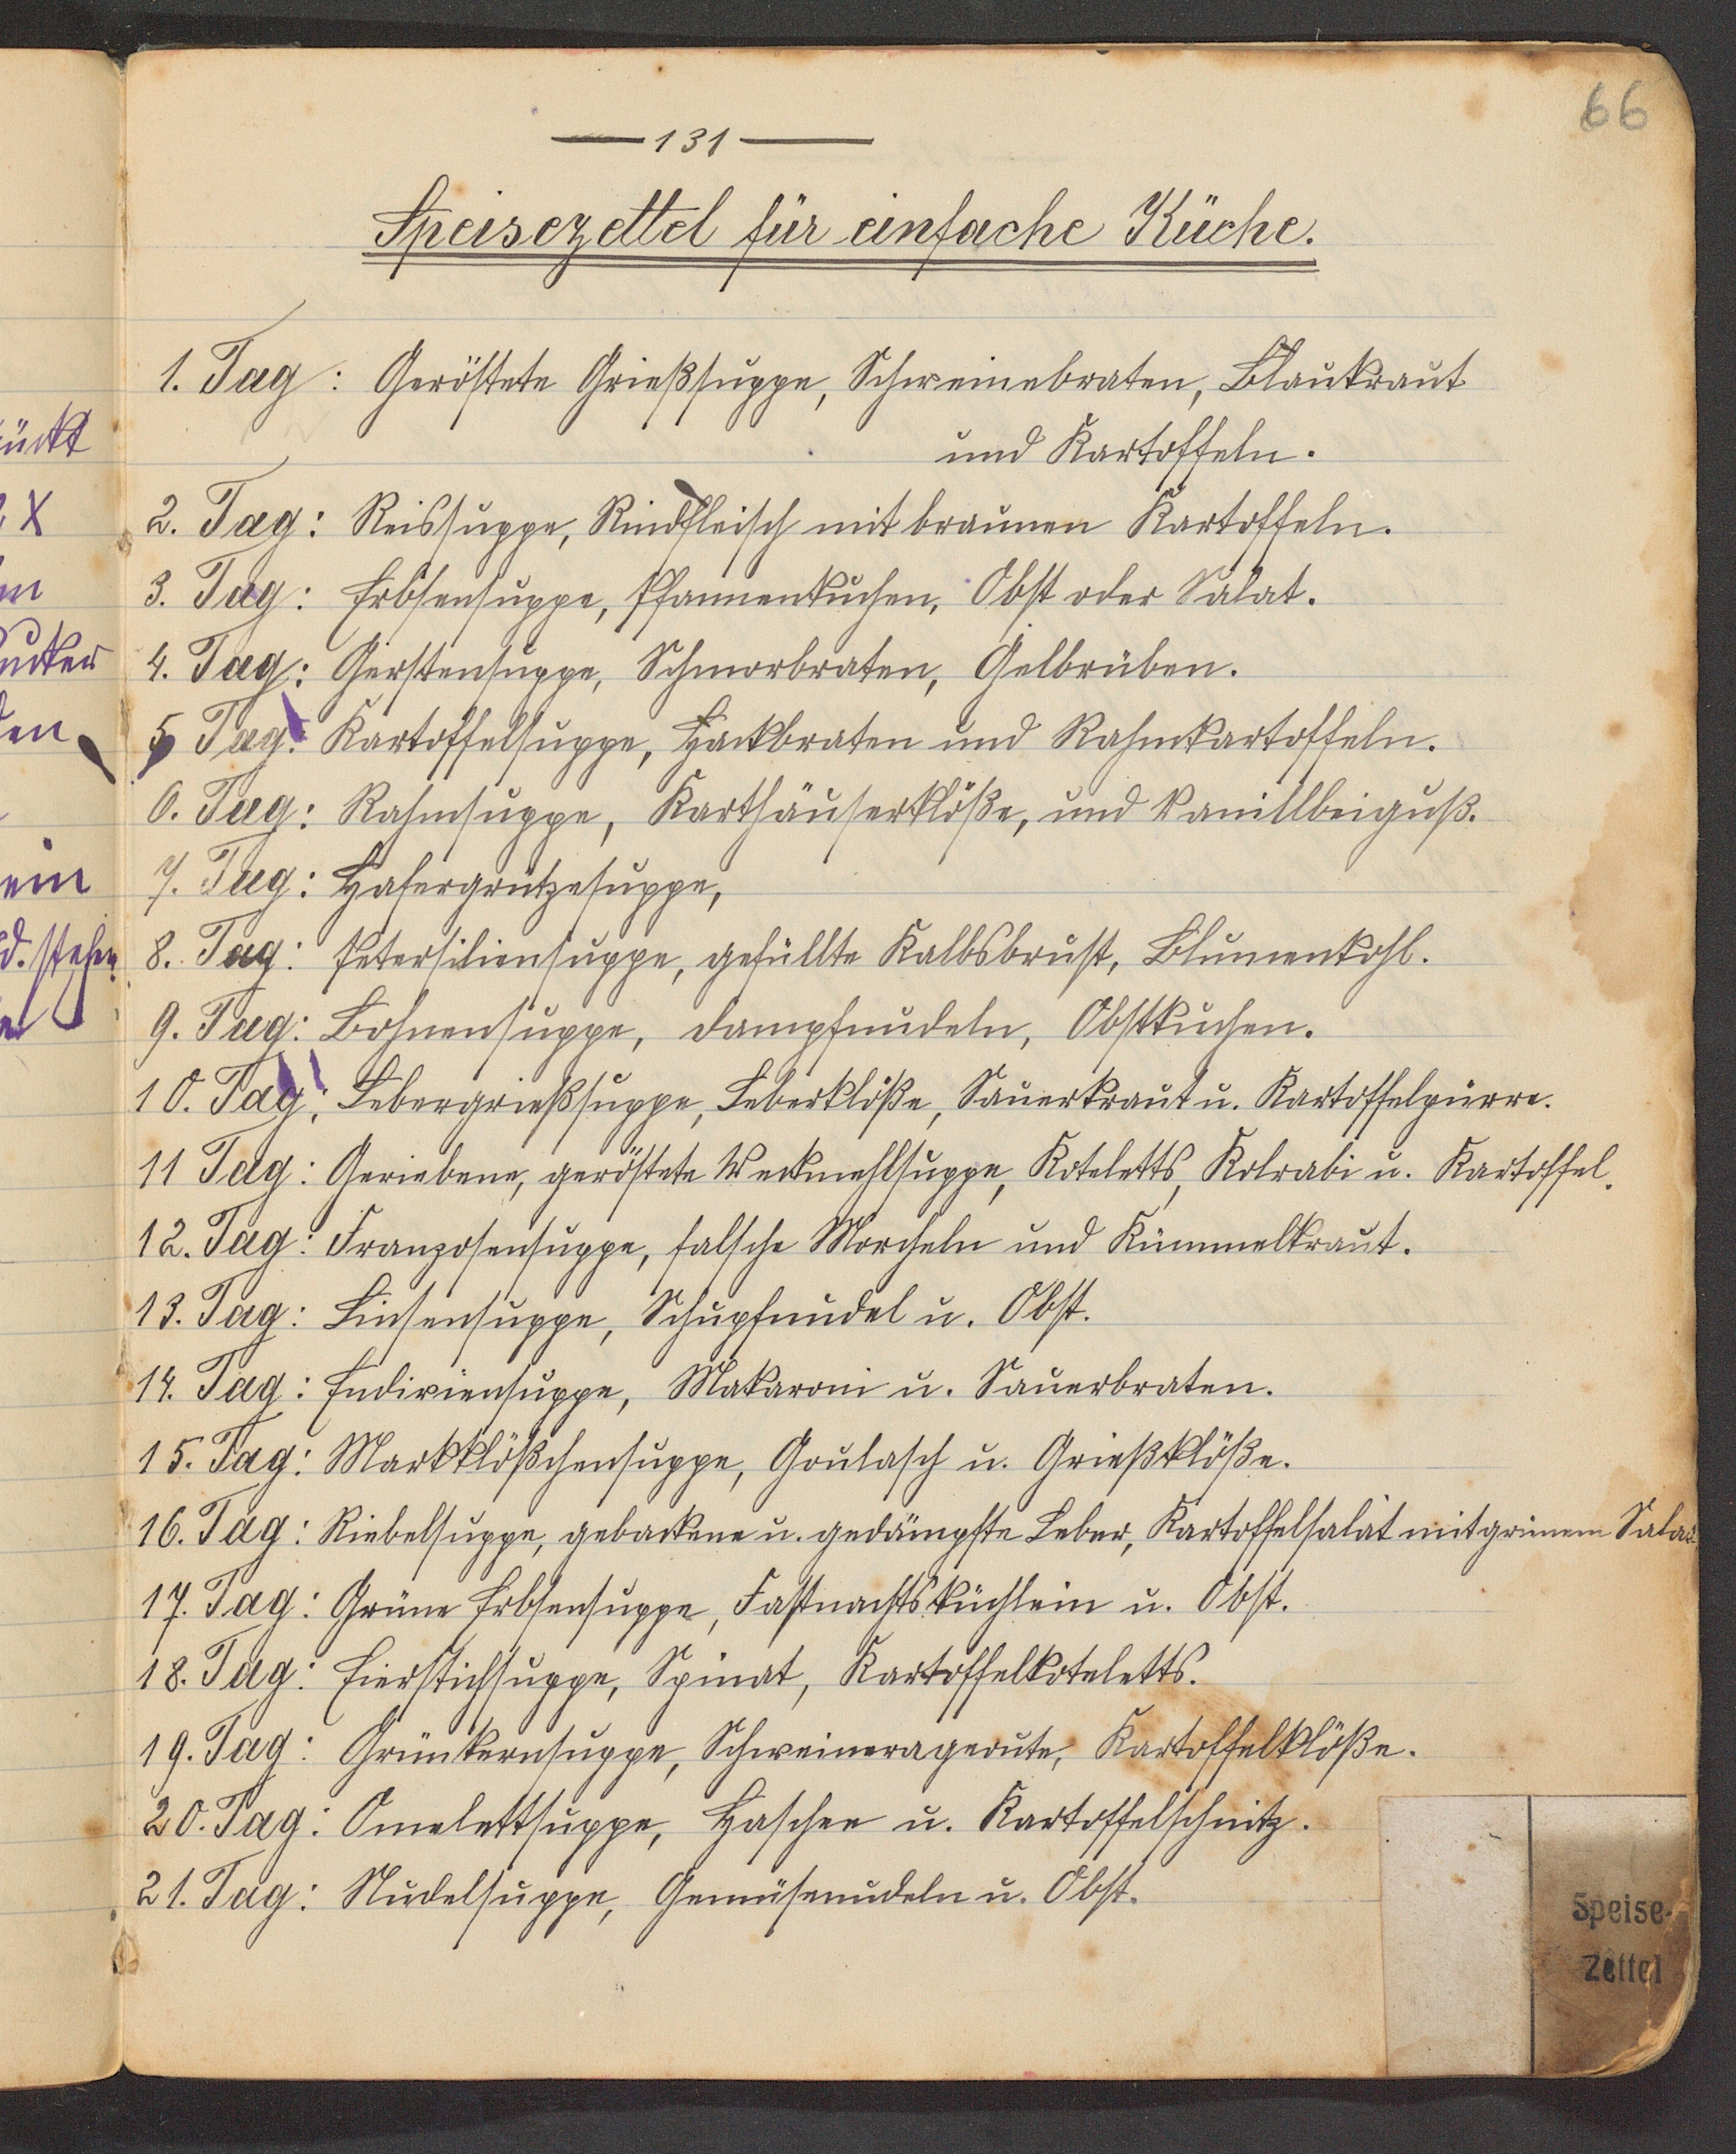 66
— 131 —
Speisezettel für einfache Küche.
1. Tag: Geröstete Grießsuppe, Schweinebraten, Blaukraut
und Kartoffeln.
2. Tag: Reissuppe, Rindfleisch mit braunen Kartoffeln.
3. Tag: Erbsensuppe, Pfannenkuchen, Obst oder Salat.
4. Tag: Gerstensuppe, Schmorbraten, Gelbrüben.
5. Tag: Kartoffelsuppe, Hackbraten und Rahmkartoffeln.
6. Tag: Rahmsuppe, Karthäuserklöße, und Vanillbeiguß.
7. Tag: Hafergrützesuppe,
8. Tag: Petersiliensuppe, gefüllte Kalbsbrust, Blumenkohl.
9. Tag: Bohnensuppe, Dampfnudeln, Obstkuchen.
10. Tag: Lebergrießsuppe, Leberklöße, Sauerkraut u. Kartoffelpürre.
11 Tag: Geriebene, geröstete Weckmehlsuppe, Koteletts, Kolrabi u. Kartoffel.
12. Tag: Franzosensuppe, falsche Morcheln und Kümmelkraut.
13. Tag: Linsensuppe, Schupfnudel u. Obst.
14. Tag: Endiviensuppe, Makaroni u. Sauerbraten.
15. Tag: Markklößchensuppe, Goulasch u. Grießklöße.
16. Tag: Riebelsuppe, gebackene u. gedämpfte Leber, Kartoffelsalat mit grünem Salat.
17. Tag: Grüne Erbsensuppe, Fastnachtsküchlein u. Obst.
18. Tag: Eierstichsuppe, Spinat, Kartoffelkoteletts.
19. Tag: Grünkernsuppe, Schweinerageoute, Kartoffelklöße.
20. Tag: Omelettsuppe, Haschee u. Kartoffelschnitz.
21. Tag: Nudelsuppe, Gemüsenudeln u. Obst.
Speise-
Zettel